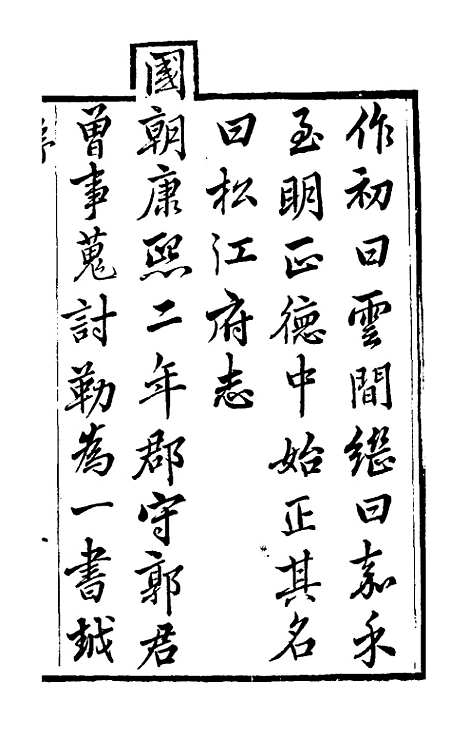 作初曰雲間繼曰嘉禾
至明正德中始正其名
曰松江府志
國朝康熙二年郡守郭君
曾事蒐討勒為一書越
序